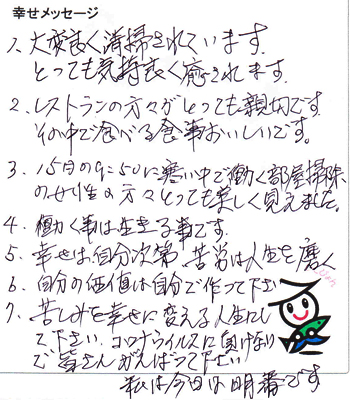 幸せメッセージ
1、大変良く清掃されています。
とっても気持良く癒されます。
2、レストランの方々がとっても親切です
その中で食べる食事おいしいです。
3、15日の9:50に寒い中で働く部屋掃除
の女性の方々とっても美しく見えました。
4、働く事は生きる事です。
5、幸せは自分次第、苦労は人生を磨く
6、自分の価値は自分で作って下さい
7、苦しみを幸せに変える人生にし
て下さい。コロナウイルスに負けない
で皆さんがんばって下さい
私は今日は明番です